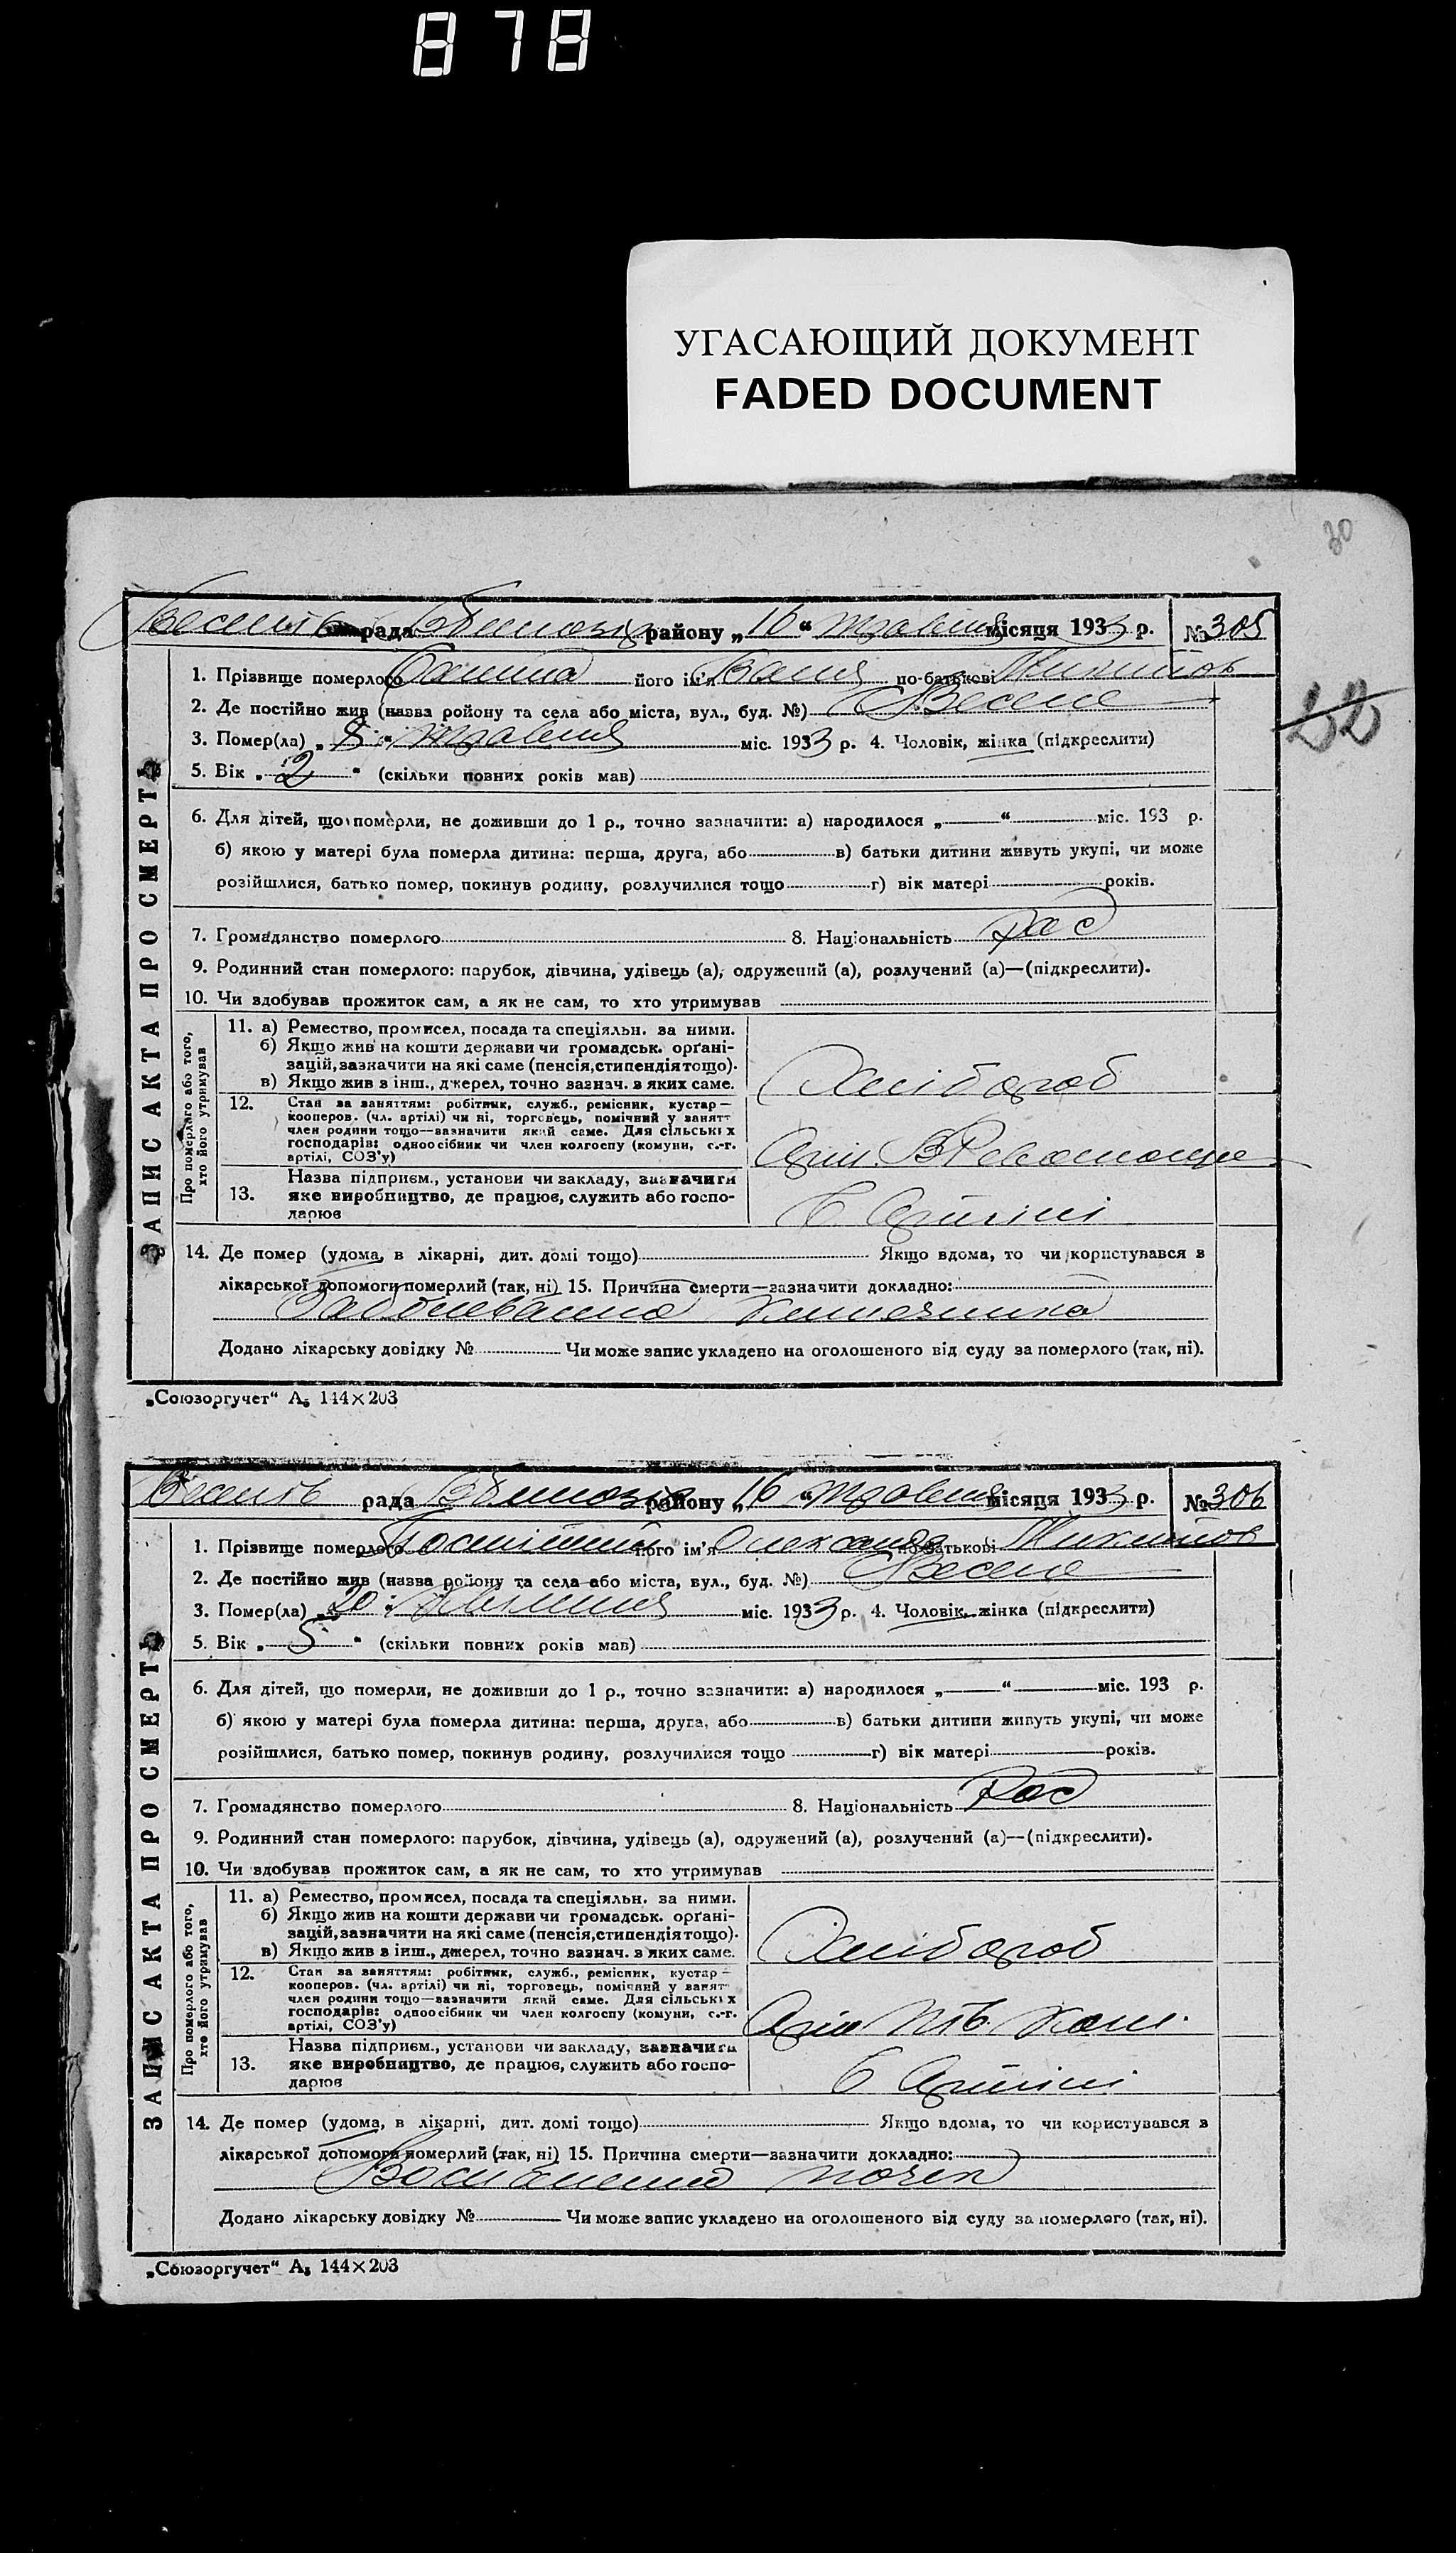 878
УГАСАЮЩИЙ ДОКУМЕНТ
FADED DOCUMENT
30
рада району „16“ травня місяця 1933 р. № 305
1. Прізвище померлого його ім'я по-батькові
2. Де постійно жив (назва ройону та села або міста, вул., буд. №) Веселе
3. Помер(ла) „8“ травня міс. 1933 р. 4. Чоловік, жінка (підкреслити)
5. Вік „2“ (скільки повних років мав)
6. Для дітей, що померли, не доживши до 1 р., точно зазначити: а) народилося „ “ міс. 193 р.
б) якою у матері була померла дитина: перша, друга, або в) батьки дитини живуть укупі, чи може
розійшлися, батько помер, покинув родину, розлучилися тощо г) вік матері років.
7. Громадянство померлого 8. Національність
9. Родинний стан померлого: парубок, дівчина, удівець (а), одружений (а), розлучений (а)—(підкреслити).
10. Чи здобував прожиток сам, а як не сам, то хто утримував
ЗАПИС АКТА ПРО СМЕРТЬ
Про померлаго або того, хто його утримував
11. а) Ремество, промисел, посада та спеціяльн. за ними.
б) Якщо жив на кошти держави чи громадськ. органі-
зацій, зазначити на які саме (пенсія, стипендія тощо).
в) Якщо жив з інш., джерел, точно зазнач. з яких саме.
Хлібороб
12. Стан за заняттям: робітник, служб., ремісник, кустар—
кооперов. (чл. артілі) чи ні, торговець, помічний у занятт
член родини тощо—зазначити який саме. Для сільських
господарів: одноосібник чи член колгоспу (комуни, с.-г.
артілі, СОЗ'у)
13. Назва підприєм., установи чи закладу, зазначити
яке виробництво, де працює, служить або госпо-
дарює
в Артілі
14. Де помер (удома, в лікарні, дит. домі тощо) Якщо вдома, то чи користувався з
лікарської допомоги померлий (так, ні) 15. Причина смерти—зазначити докладно:
Додано лікарську довідку № Чи може запис укладено на оголошеного від суду за померлого (так, ні).
„Союзоргучет“ А₅ 144×203
рада району „16“ травня місяця 1933 р. № 306
1. Прізвище померлого його ім'я Олександр по-батькові
2. Де постійно жив (назва ройону та села або міста, вул., буд. №) Веселе
3. Помер(ла) „20“ міс. 1933 р. 4. Чоловік, жінка (підкреслити)
5. Вік „5“ (скільки повних років мав)
6. Для дітей, що померли, не доживши до 1 р., точно зазначити: а) народилося „ “ міс. 193 р.
б) якою у матері була померла дитина: перша, друга, або в) батьки дитини живуть укупі, чи може
розійшлися, батько помер, покинув родину, розлучилися тощо г) вік матері років.
7. Громадянство померлого 8. Національність
9. Родинний стан померлого: парубок, дівчина, удівець (а), одружений (а), розлучений (а)—(підкреслити).
10. Чи здобував прожиток сам, а як не сам, то хто утримував
ЗАПИС АКТА ПРО СМЕРТЬ
Про померлого або того, хто його утримував
11. а) Ремество, промисел, посада та спеціяльн. за ними.
б) Якщо жив на кошти держави чи громадськ. органі-
зацій, зазначити на які саме (пенсія, стипендія тощо).
в) Якщо жив з інш., джерел, точно зазнач. з яких саме.
Хлібороб
12. Стан за заняттям: робітник, служб., ремісник, кустар—
кооперов. (чл. артілі) чи ні, торговець, помічний у занят
член родини тощо—зазначити який саме. Для сільських
господарів: одноосібник чи член колгоспу (комуни, с.-г.
артілі, СОЗ'у)
13. Назва підприєм., установи чи закладу, зазначити
яке виробництво, де працює, служить або госпо-
дарює
в Артілі
14. Де помер (удома, в лікарні, дит. домі тощо) Якщо вдома, то чи користувався з
лікарської допомоги померлий (так, ні) 15. Причина смерти—зазначити докладно:
почек
Додано лікарську довідку № Чи може запис укладено на оголошеного від суду за померлого (так, ні).
„Союзоргучет“ А₅ 144×203